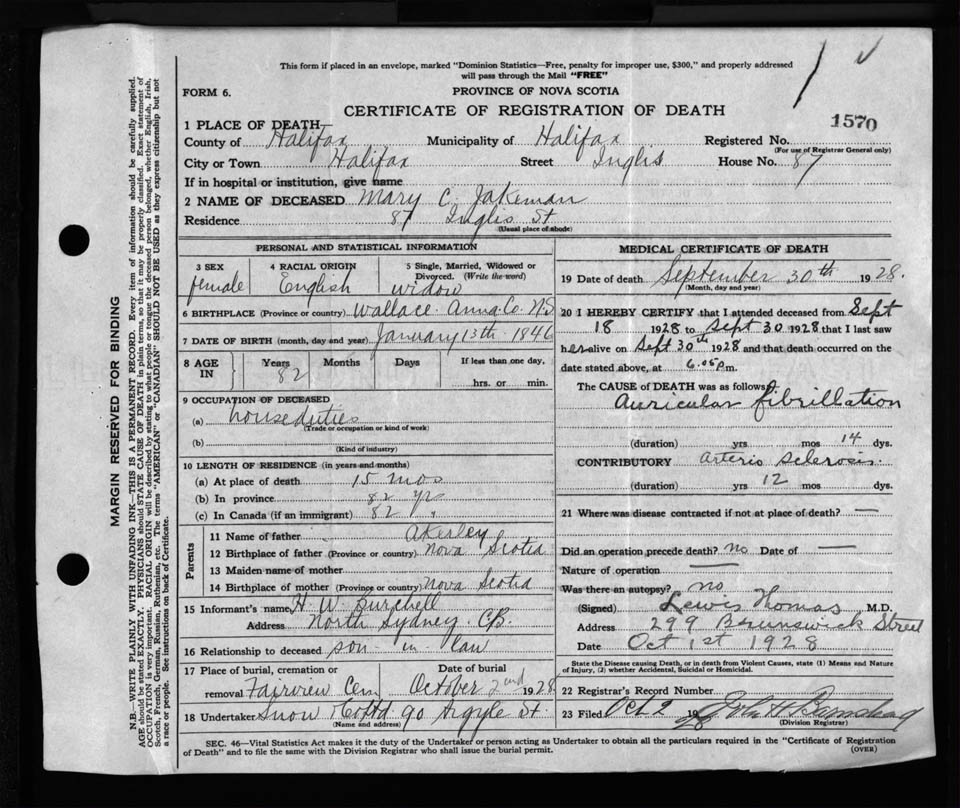 This form if placed in an envelope, marked "Dominion Statistics—Free, penalty for improper use, $300," and properly addressed
will pass through the Mail "FREE"
FORM 6.
PROVINCE OF NOVA SCOTIA
CERTIFICATE OF REGISTRATION OF DEATH
1570
1 PLACE OF DEATH
County of Halifax Municipality of Halifax Registered No.
(For use of Registrar General only)
City or Town Halifax Street Inglis House No. 87
If in hospital or institution, give name
2 NAME OF DECEASED Mary C. Jakeman
Residence 87 Inglis St
(Usual place of abode)
PERSONAL AND STATISTICAL INFORMATION
3 SEX 4 RACIAL ORIGIN 5 Single, Married, Widowed or Divorced. (Write the word)
female English widow
6 BIRTHPLACE (Province or country) Wallace. Anna. Co. N.S.
7 DATE OF BIRTH (month, day and year) January 13th 1846
8 AGE IN Years Months Days If less than one day,
82 hrs. or min.
9 OCCUPATION OF DECEASED
(a) houseduties
(Trade or occupation or kind of work)
(b)
(Kind of industry)
10 LENGTH OF RESIDENCE (in years and months)
(a) At place of death 15 mos
(b) In province 82 yrs
(c) In Canada (if an immigrant) 82 "
Parents
11 Name of father Akerley
12 Birthplace of father (Province or country) Nova Scotia
13 Maiden name of mother
14 Birthplace of mother (Province or country) Nova Scotia
15 Informant's name H. W. Burchell
Address North Sydney. C.B.
16 Relationship to deceased son-in-law
17 Place of burial, cremation or removal Date of burial
Fairview Cem October 2nd 1928
18 Undertaker Snow & Co Ltd 90 Argyle St.
(Name and address)
MEDICAL CERTIFICATE OF DEATH
19 Date of death September 30th 1928.
(Month, day and year)
20 I HEREBY CERTIFY that I attended deceased from Sept
18 1928 to Sept 30 1928 that I last saw
her alive on Sept 30th 1928 and that death occurred on the
date stated above, at 6.05 p.m.
The CAUSE of DEATH was as follows:
Auricular fibrillation
(duration) yrs mos 14 dys.
CONTRIBUTORY Arterio Sclerosis.
(duration) yrs 12 mos dys.
21 Where was disease contracted if not at place of death? —
Did an operation precede death? no Date of —
Nature of operation —
Was there an autopsy? no
(Signed) Lewis Thomas M.D.
Address 299 Brunswick Street
Date Oct 1st 1928
State the Disease causing Death, or in death from Violent Causes, state (1) Means and Nature of Injury, (2) whether Accidental, Suicidal or Homicidal.
22 Registrar's Record Number
23 Filed Oct 2 1928
(Division Registrar)
SEC. 46—Vital Statistics Act makes it the duty of the Undertaker or person acting as Undertaker to obtain all the particulars required in the "Certificate of Registration
of Death" and to file the same with the Division Registrar who shall issue the burial permit.
(OVER)
MARGIN RESERVED FOR BINDING
N.B.—WRITE PLAINLY WITH UNFADING INK—THIS IS A PERMANENT RECORD. Every item of information should be carefully supplied.
AGE should be stated EXACTLY. PHYSICIANS should STATE CAUSE OF DEATH in plain terms, so that it may be properly classified. Exact statement of
OCCUPATION is very important. RACIAL ORIGIN will be described by stating to what people or tongue the deceased person belonged, whether English, Irish,
Scotch, French, German, Russian, Ruthenian, etc. The terms "AMERICAN" or "CANADIAN" SHOULD NOT BE USED as they express citizenship but not
a race or people. See instructions on back of Certificate.